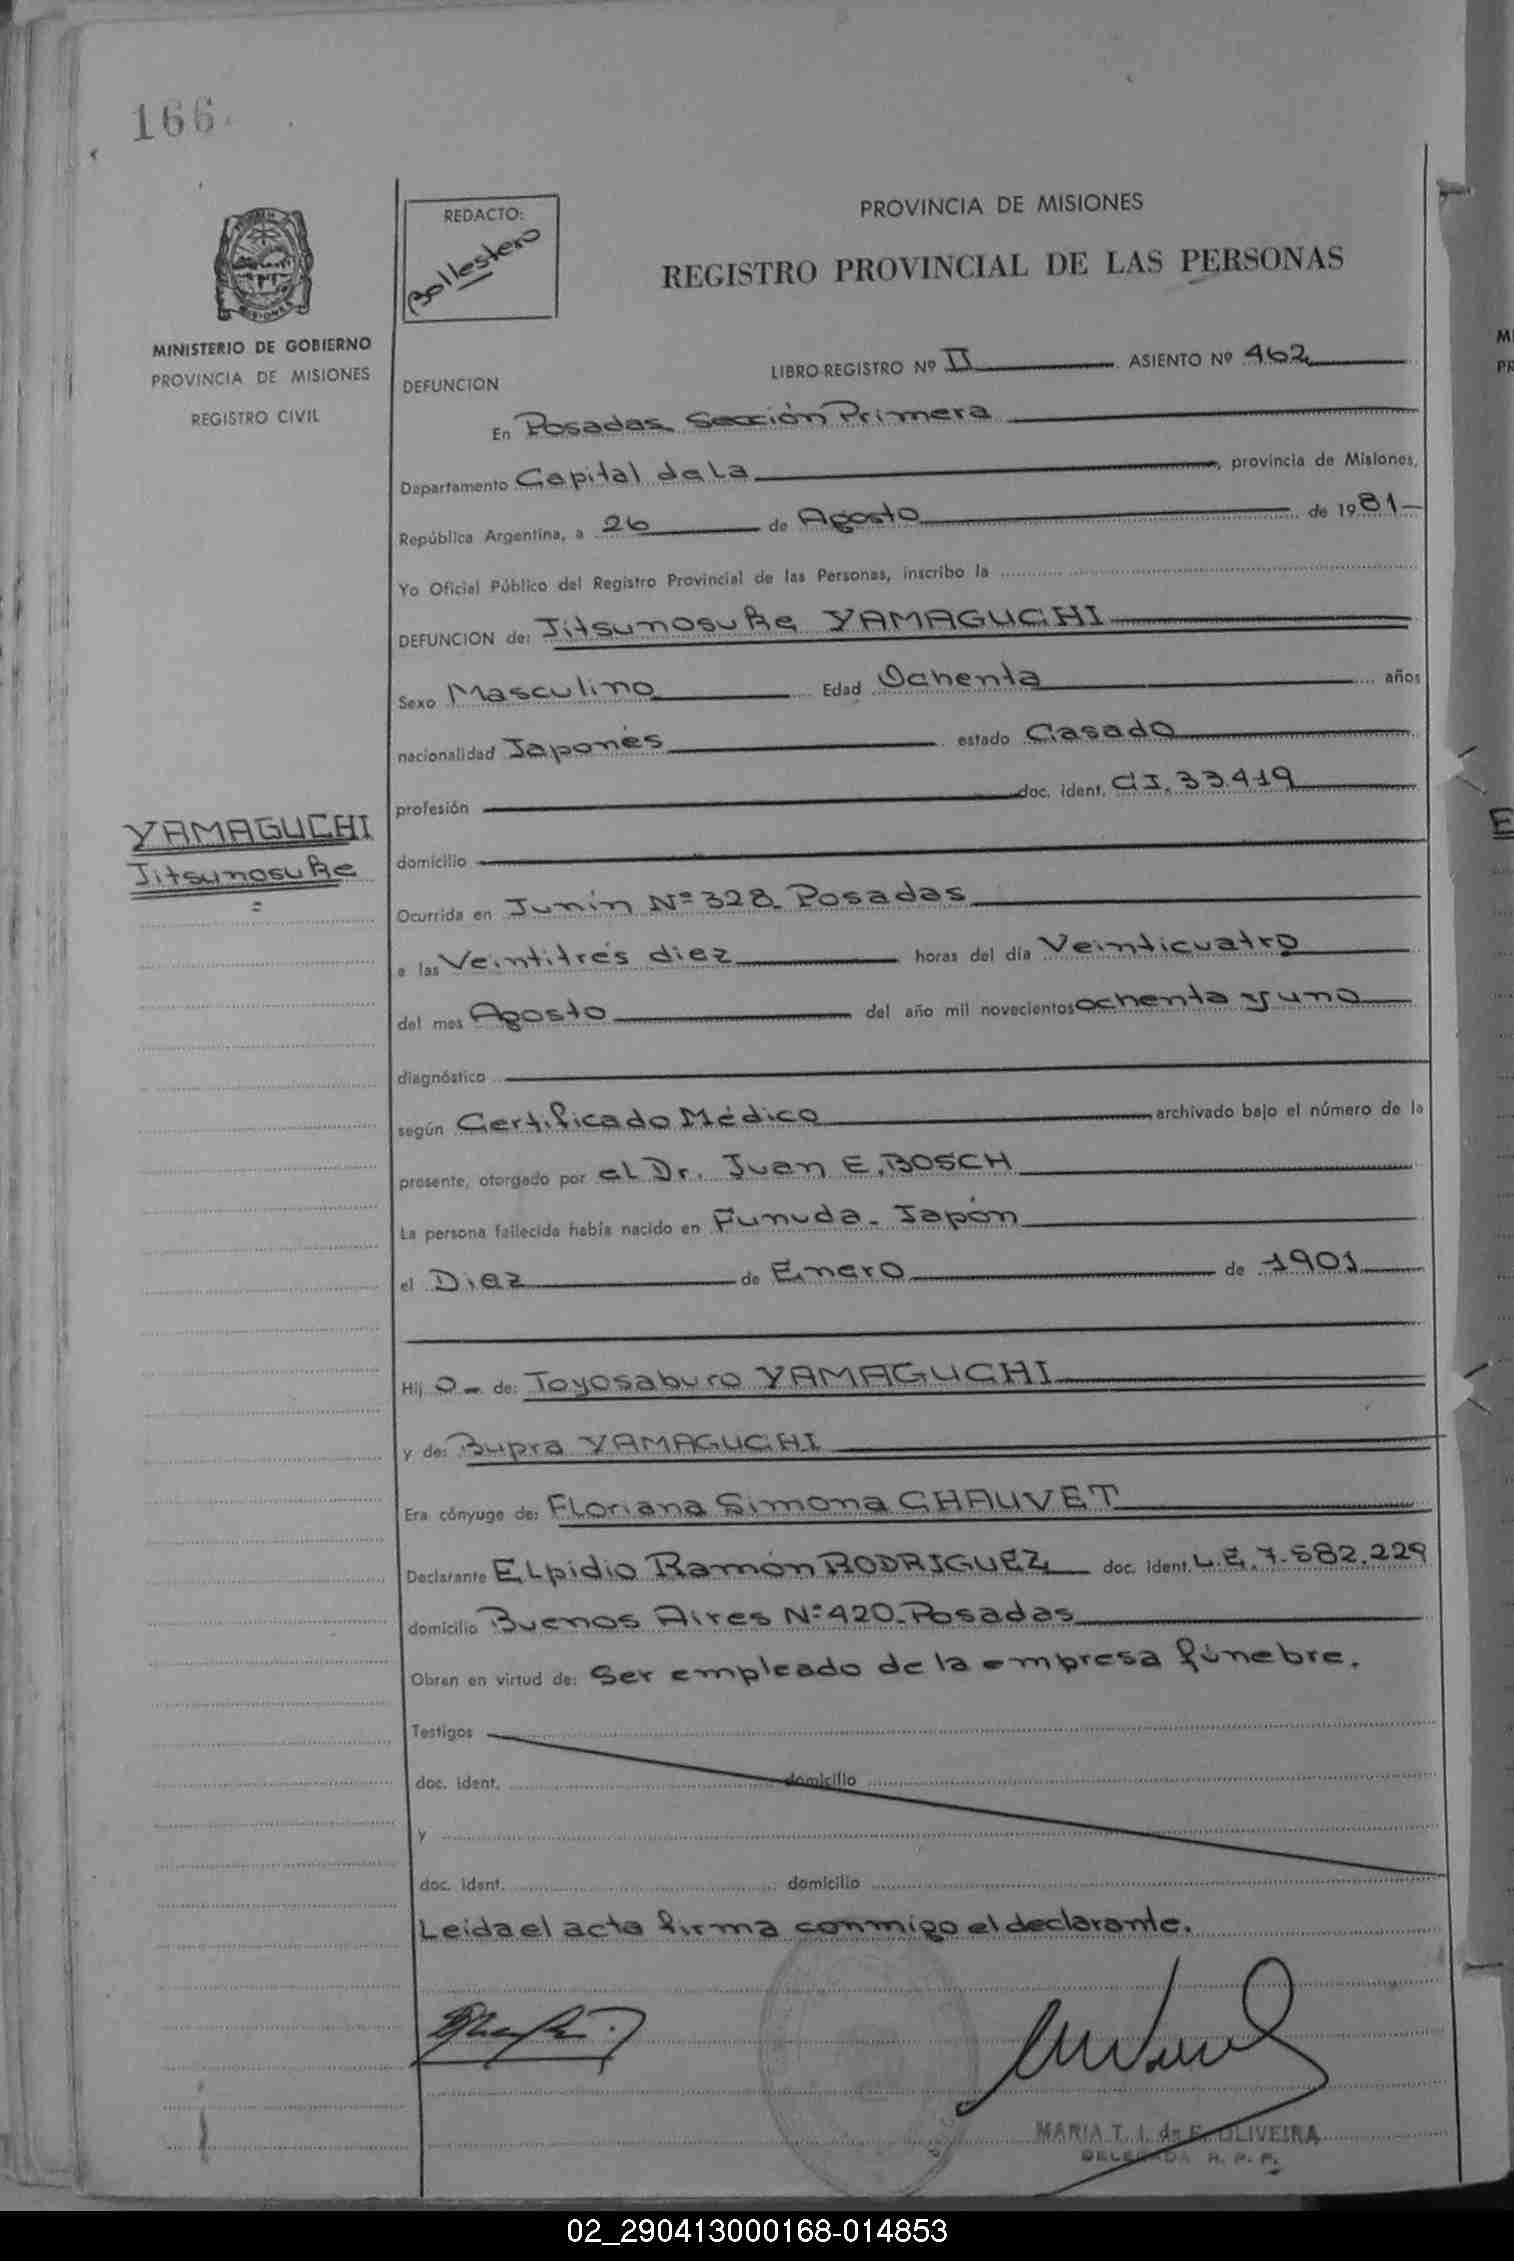 166
REDACTO:
Ballestero
PROVINCIA DE MISIONES
REGISTRO PROVINCIAL DE LAS PERSONAS
MINISTERIO DE GOBIERNO
PROVINCIA DE MISIONES
REGISTRO CIVIL
LIBRO-REGISTRO Nº II ASIENTO Nº 462
DEFUNCION
En Posadas Sección Primera
Departamento Capital de La, provincia de Misiones,
República Argentina, a 26 de Agosto de 1981
Yo Oficial Público del Registro Provincial de las Personas, inscribo la
DEFUNCION de: Jitsunosuke YAMAGUCHI
Sexo Masculino Edad Ochenta años
nacionalidad Japonés estado Casado
profesión doc. ident. CI. 33.419
YAMAGUCHI
Jitsunosuke
domicilio
Ocurrida en Junín Nº 328. Posadas
a las Veintitrés diez horas del día Veinticuatro
del mes Agosto del año mil novecientos ochenta y uno
diagnóstico
según Certificado Médico archivado bajo el número de la
presente, otorgado por el Dr. Juan E. BOSCH
La persona fallecida había nacido en Fumuda. Japón
el Diez de Enero de 1901
Hijo de: Toyosaburo YAMAGUCHI
y de: Bupra YAMAGUCHI
Era cónyuge de: Floriana Simona CHAUVET
Declarante Elpidio Ramón RODRIGUEZ doc. ident. L.E. 7.582.229
domicilio Buenos Aires Nº 420. Posadas
Obran en virtud de: Ser empleado de la empresa fúnebre.
Testigos
doc. ident. domicilio
y
doc. ident. domicilio
Leida el acta firma conmigo el declarante.
MARIA T. I. de F. OLIVEIRA
DELEGADA R. P. P.
02_290413000168-014853